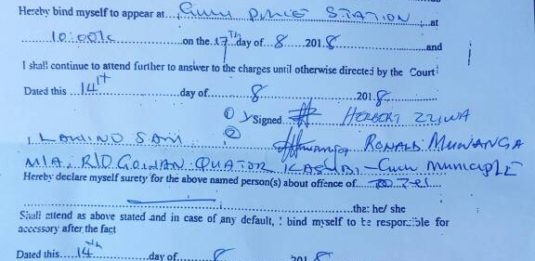 Hereby bind myself to appear at GULU POLICE STATION at
10:00AM on the 17th day of 8 2018 and
I shall continue to attend further to answer to the charges until otherwise directed by the Court
Dated this 14th day of 8 2018
① Signed HERBERT ZZIWA
I, LAKINO SAM ② RONALD MUWANGA
M/A R/O GOLDAN QUATOR KASUBI - Gulu MUNICIPLE
Hereby declare myself surety for the above named person(s) about offence of
the: he/ she
Shall attend as above stated and in case of any default, I bind myself to be responsible for
accessory after the fact
Dated this 14th day of 8 2018